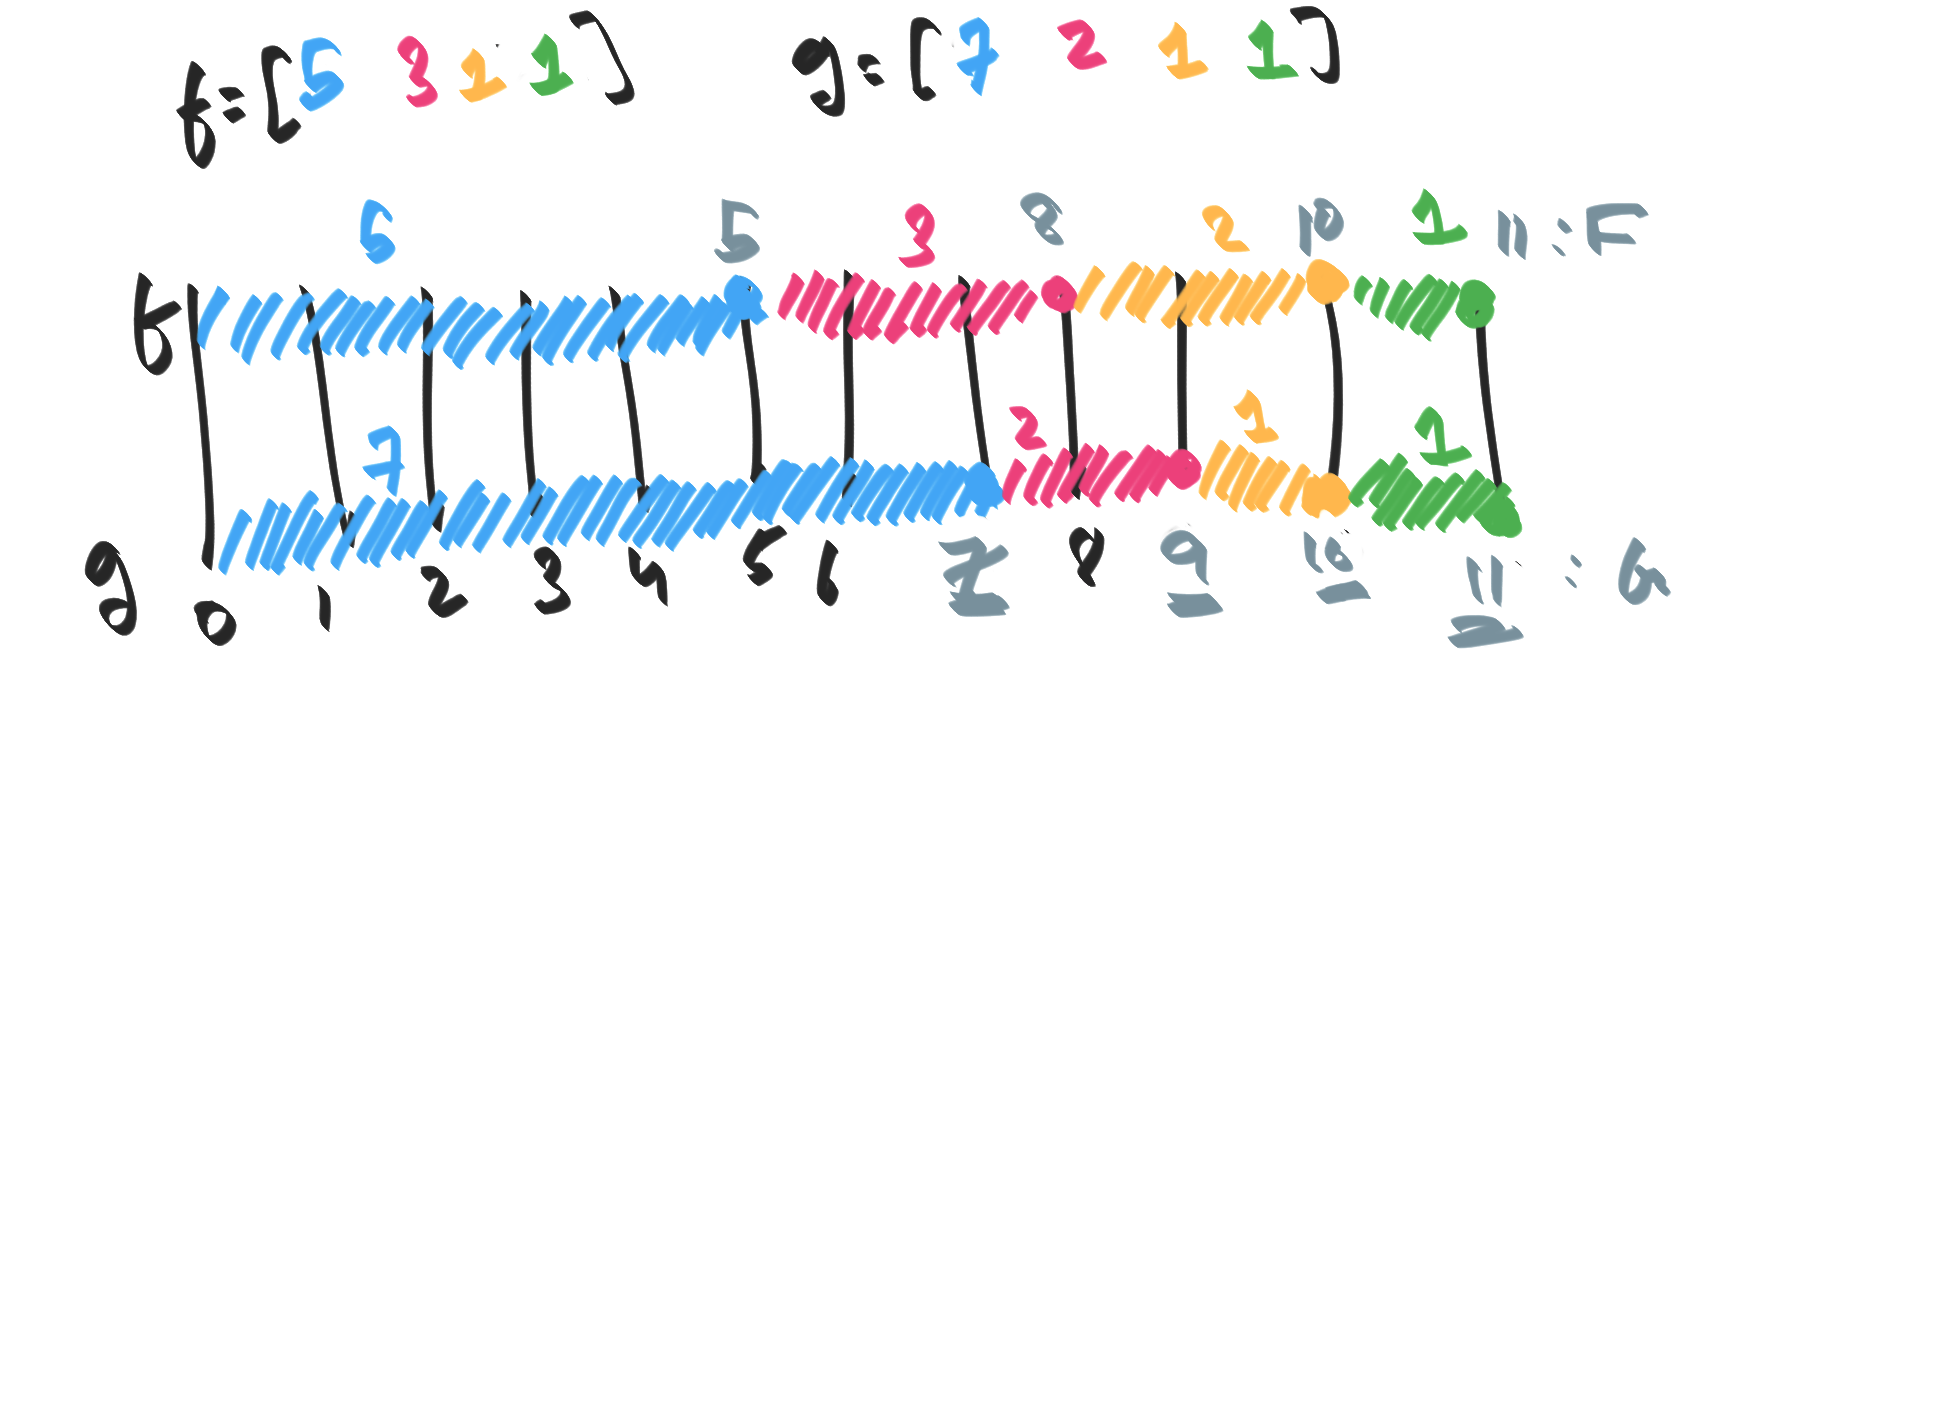 f=[5 3 1 1] g=[7 2 1 1]
5 5 3 8 2 10 1 11 : F
f
7 2 1 1
g 0 1 2 3 4 5 6 7 8 9 10 11 : G